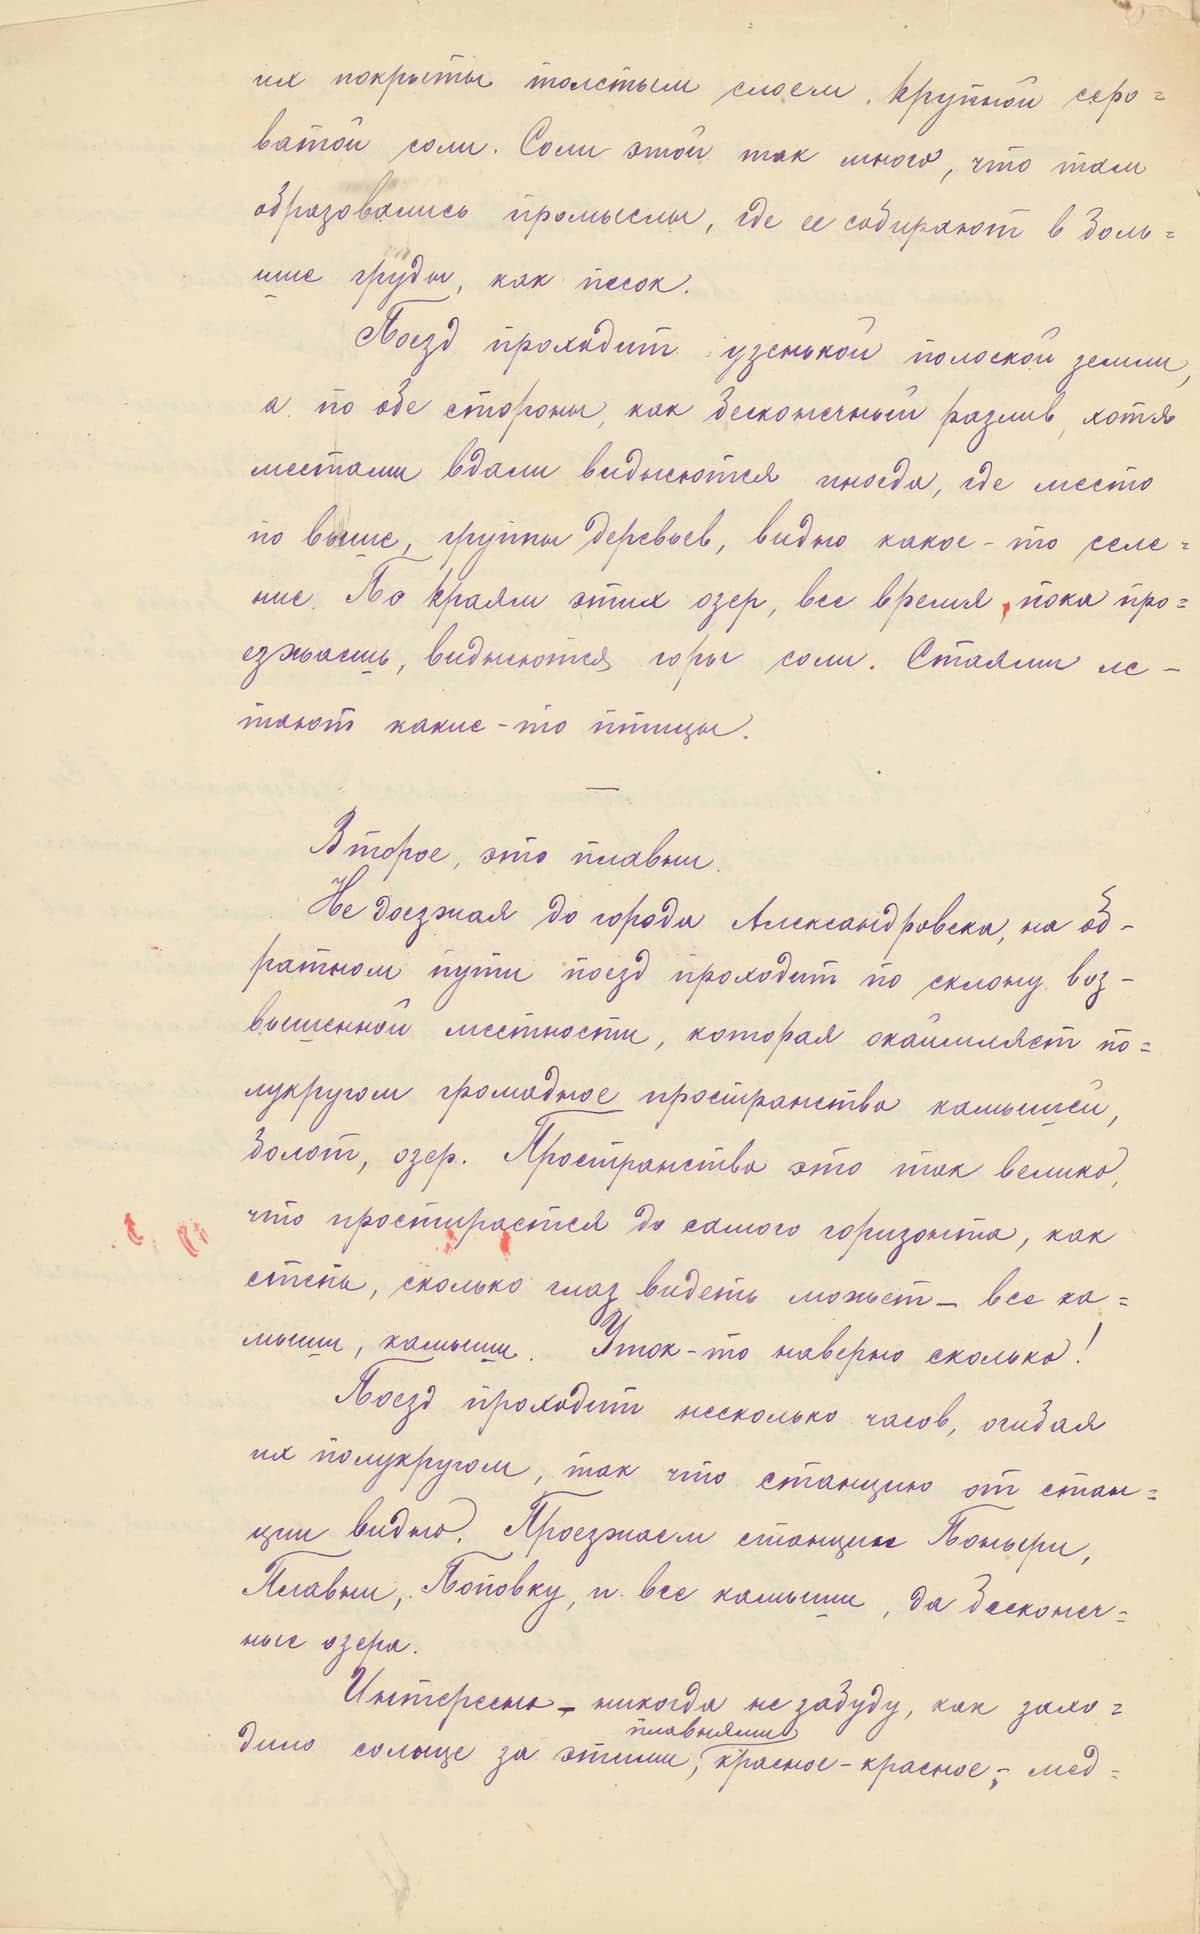 их покрыты толстым слоем крупной серо=
ватой соли. Соли этой так много, что там
образовались промыслы, где ее собирают в боль=
шие груды, как песок.
Поезд проходит узенькой полоской земли,
а по обе стороны, как бесконечный разлив, хотя
местами вдали виднеются иногда, где место
по выше, группы деревьев, видно какое-то селе=
ние. По краям этих озер, все время, пока про=
езжаешь, виднеются горы соли. Стаями ле-
тают какие-то птицы.
—
Второе, это плавни.
Не доезжая до города Александровска, на об-
ратном пути поезд проходит по склону воз-
вышенной местности, которая окаймляет по=
лукругом громадное пространство камышей,
болот, озер. Пространство это так велико,
что простирается до самого горизонта, как
степь, сколько глаз видеть может — все ка=
мыши, камыши. Уток-то наверно сколько!
Поезд проходит несколько часов, огибая
их полукругом, так что станцию от стан=
ции видно. Проезжаем станции Поныри,
Плавни, Поповку, и все камыши, да бесконеч=
ные озера.
Интересно — никогда не забуду, как захо=
плавнями
дило солнце за этими, красное-красное; — мед=